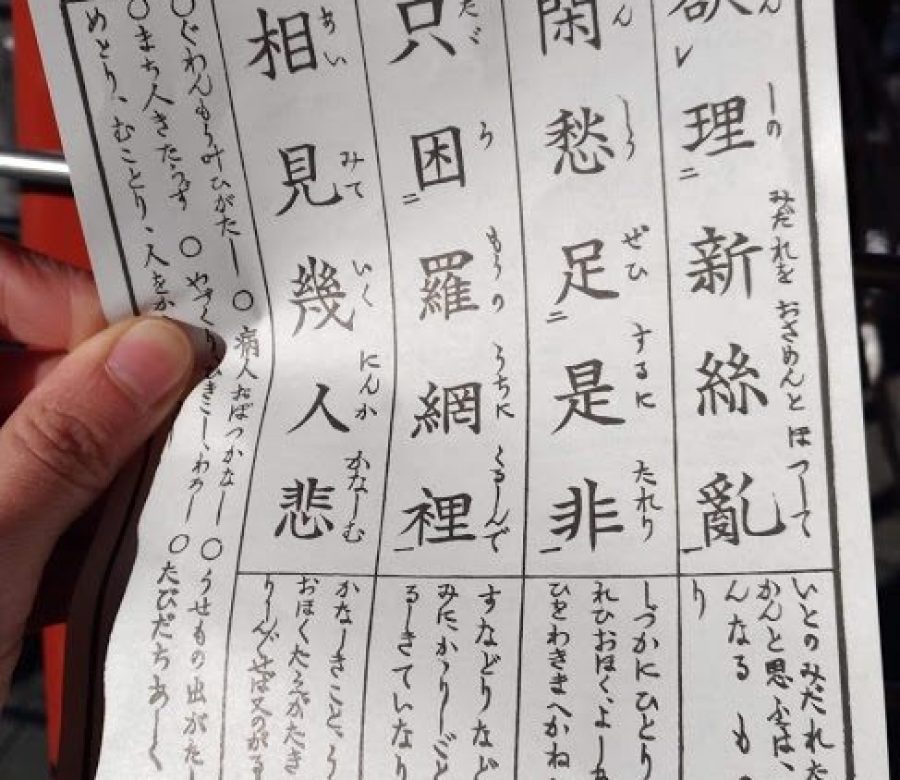 欲レ理二新絲亂一
ん しの みだれを おさめんと ほつして
閑愁足二是非一
ん しう ぜひ するに たれり
只困二羅網裡一
たゞ う もうの うちに くるしんで
相見幾人悲
あい みて いく にんか かなしむ
いとのみだれた
かんと思ふは、
んなる もの
り
しづかにひとり
れひおほく、よしあ
ひをわきまへかね
すなどりなど
みにかゝりしごと
るしきていなり
かなしきこと、う
おほくたえがたき
せば又のがる
○ぐわんもう叶ひがたし ○病人おぼつかなし ○うせもの出がたし
○まち人きたらず ○やづくり、ひきこし、わろし ○たびだちあしく
めとり、むことり、人をか